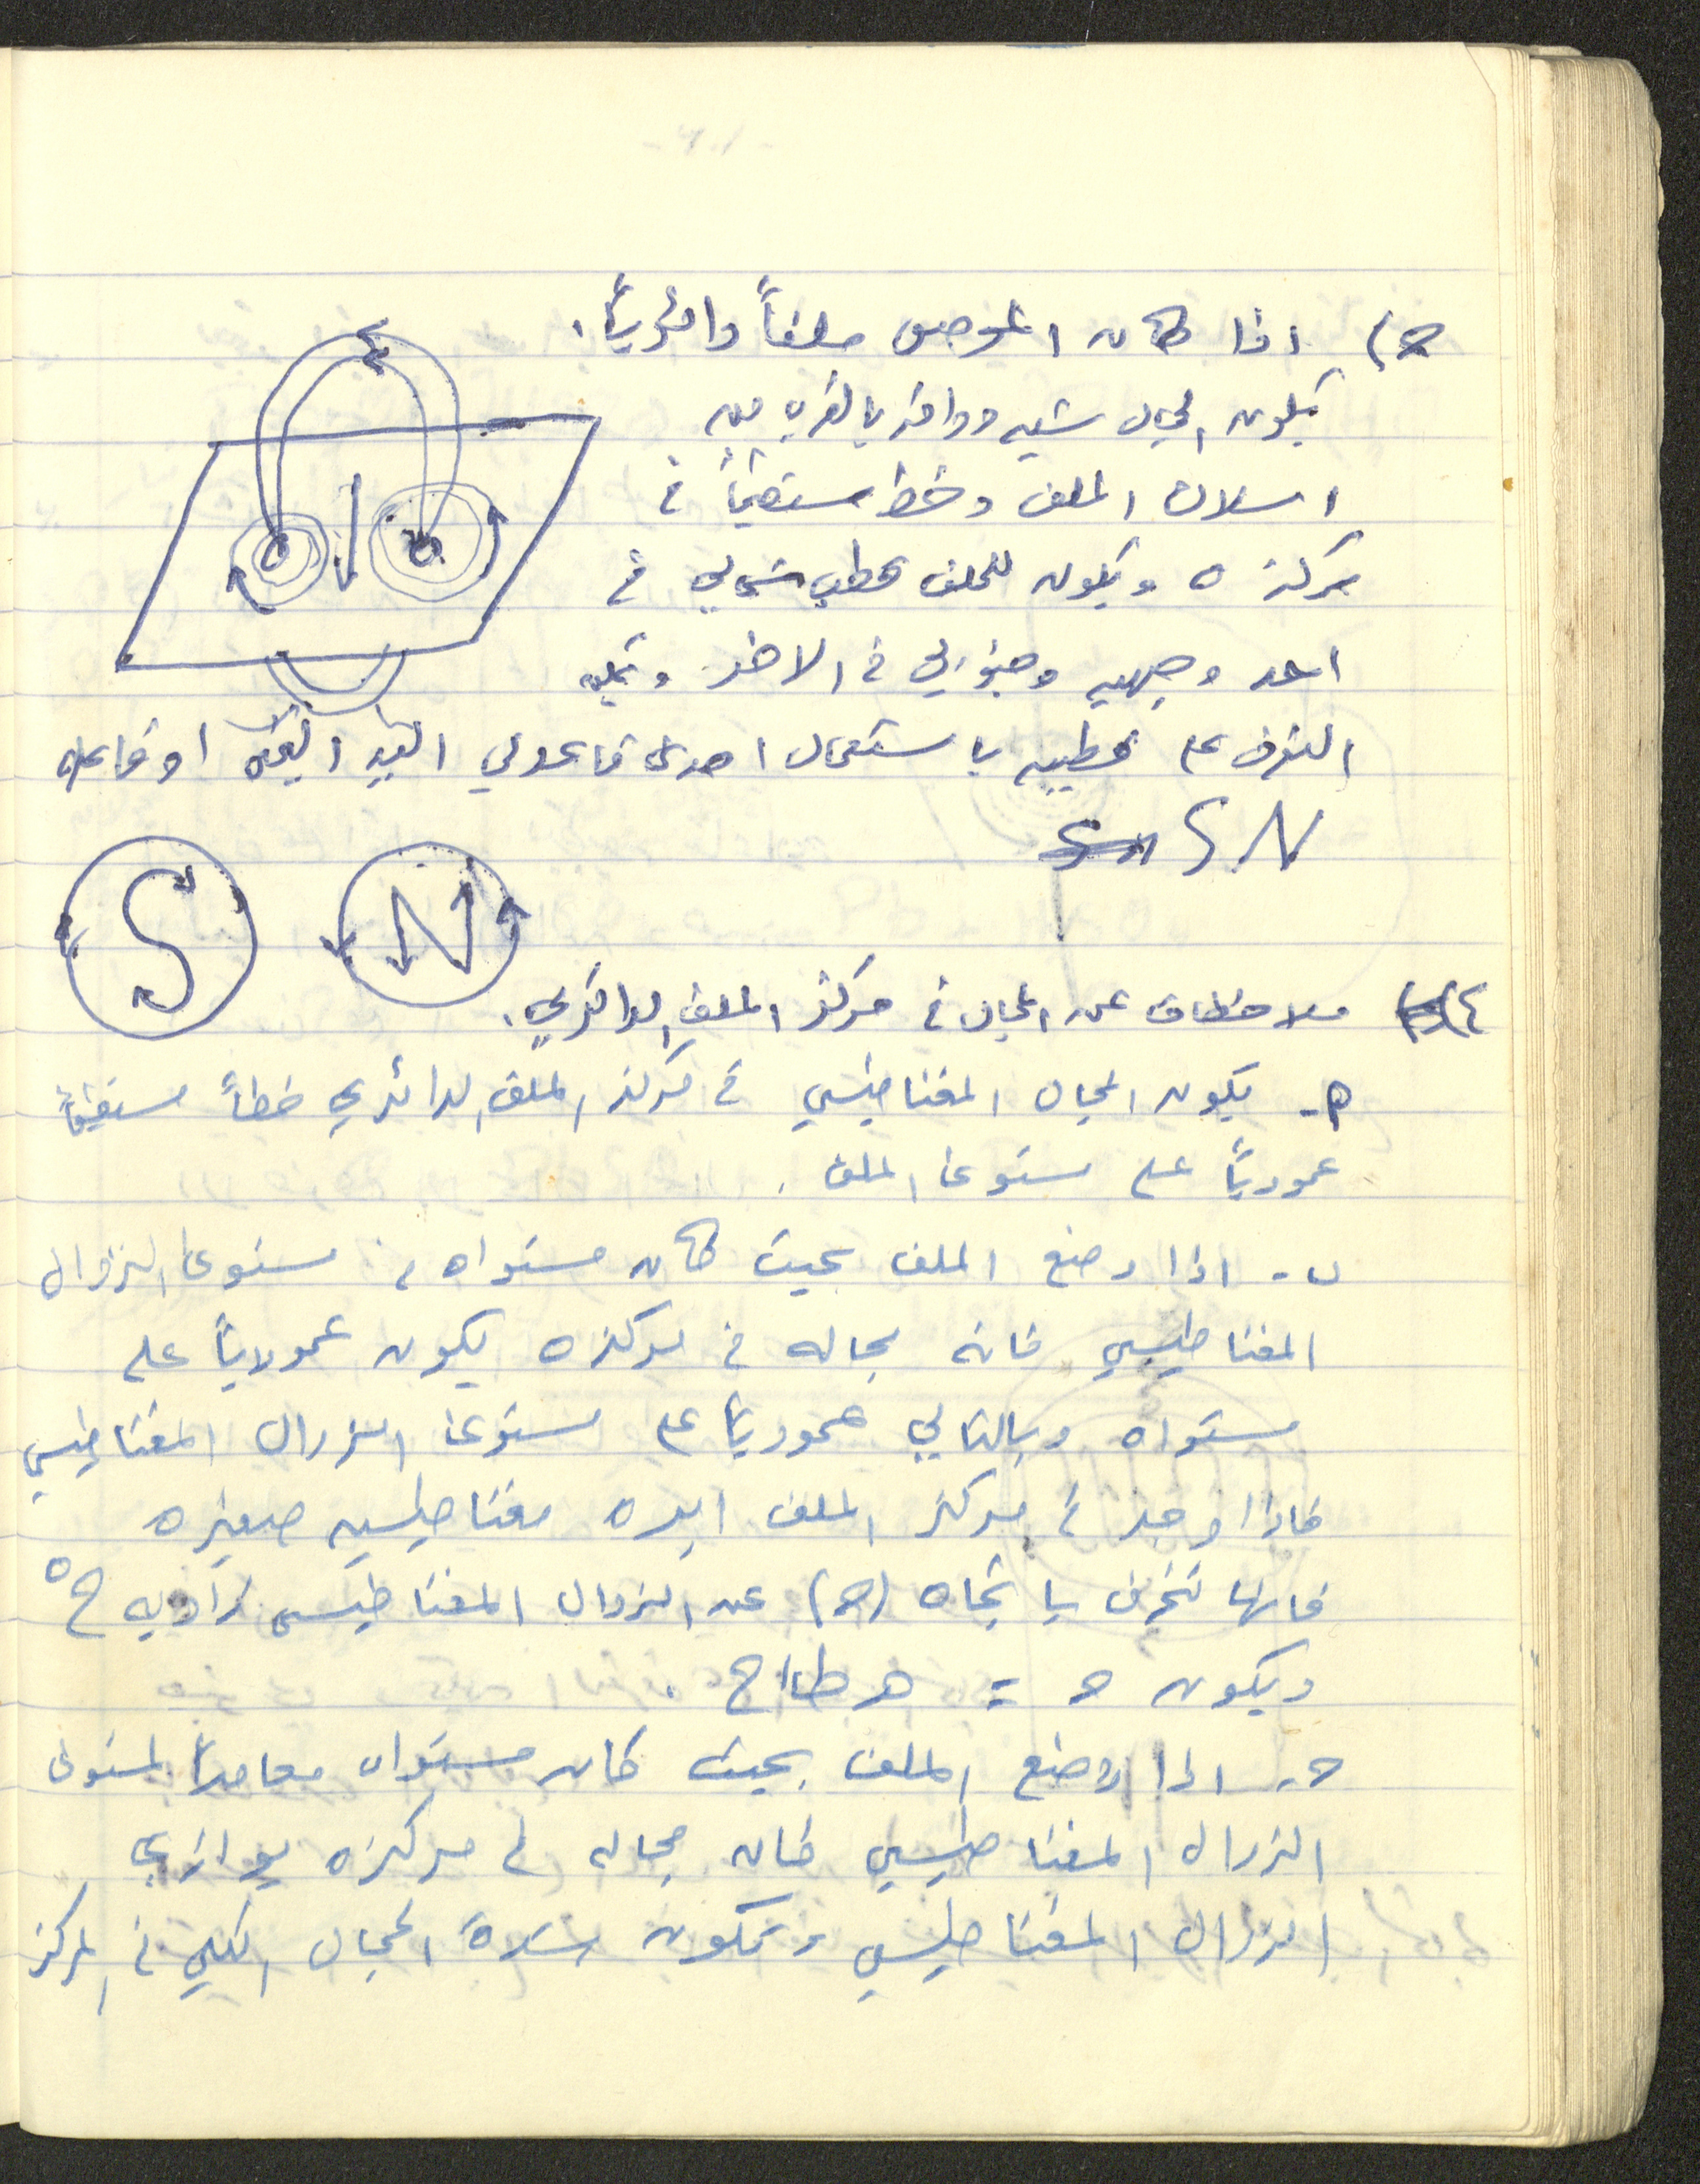 حـ) اذا كان الموصل ملفاً دائرياً.
يكون المجال شبه دوائر بالقرب من
اسلاك الملف وخط مستقيماً في
مركزه ويكون للملف قطب شمالي في
احد وجهيه وجنوبي في الاخر ويمكن
التعرف على قطبيه باستعمال احدى قاعدتي اليد اليمنى او قاعدة
S N
S N
٤) ملاحظات عن المجال في مركز الملف الدائري.
م- يكون المجال المغناطيسي في مركز الملف الدائري خطاً مستقيماً
عمودياً على مستوى الملف.
ب- اذا وضع الملف بحيث كان مستواه في مستوى الزوال
المغناطيسي فانه مجاله في مركزه يكون عمودياً على
مستواه وبالتالي عمودياً على مستوى الزوال المغناطيسي
فاذا وجد في مركز الملف ابره مغناطيسيه صغيره
فانها تنحرف باتجاه (حـ) عن الزوال المغناطيسي زاويه ح°
ويكون حـ = هـ طا ح.
حـ- اذا وضع الملف بحيث كان مستواه معامداً لمستوى
الزوال المغناطيسي فان مجاله في مركزه يوازي
الزوال المغناطيسي وتكون شدة المجال الكلي في المركز